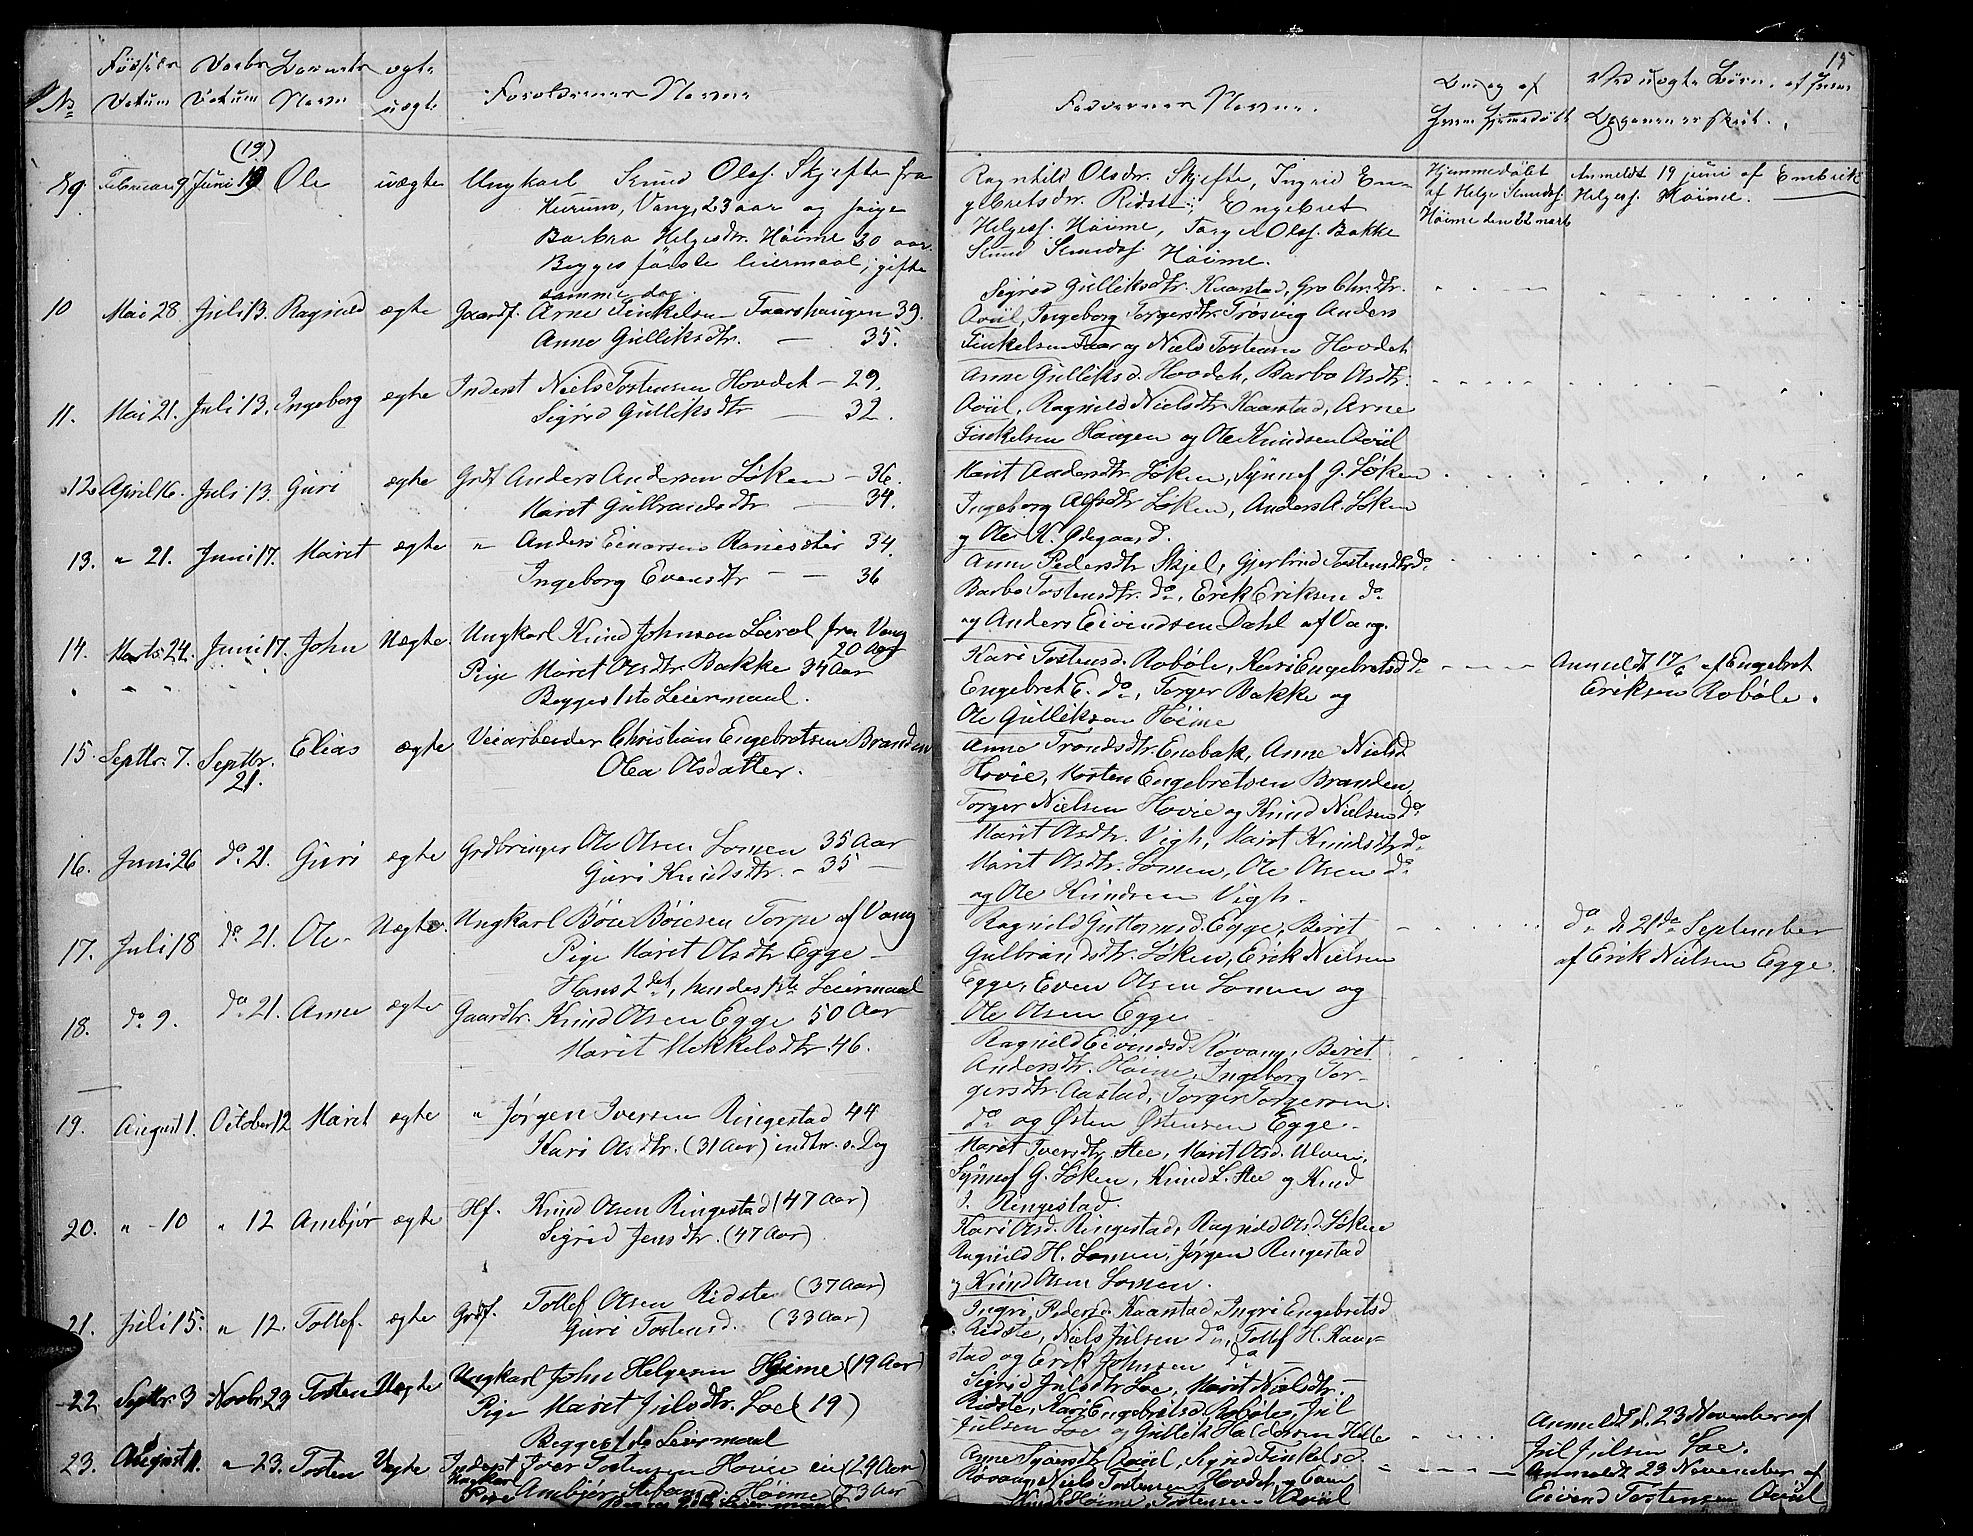 15
No Fødsels Datum Daabs Datum Barnets Navn ægte uægte Forældrenes Navne
Faddernes Navne.
Daab af hjemmedøbt
Ved uægte Børn, af hvem Opgaven er skeet.
(19)
9. Februar 9 Juni 19 Ole uægte Ungkarl Knud Olsf. Skjefte fra
Hurum, Vang, 23 aar og pige
Barbra Helgesdtr. Høime 30 aar.
Begges første leiermaal; gifte
samme dag.
Ragnhild Olsdtr. Skjefte, Ingrid En-
gebretsdtr. Ridste, Engebret
Helgesf. Høime, Torger Olsf. Bakke
Knud Knudsf. Høime.
Hjemmedøbt
af Helge Knudsf.
Høime den 22 marts
Anmeldt 19 juni af Embrik
Helgesf. Høime.
10 Mai 28 Juli 13. Ragnild ægte Gaardf. Arne Finkelsen Faarshaugen 39.
Anne Gulliksdtr. — 35.
Sigrid Gulliksdtr. Kaarstad, Gro Chr.dtr.
Qvül, Ingeborg Torgersdtr. Trøsvig Anders
Finkelsen Faar og Niels Tostensen Hovdet
11. Mai 21. Juli 13. Ingeborg ægte Inderst Niels Tostensen Hovdet — 29.
Sigrid Gulliksdtr — 32.
Anne Gulliksd. Hovdet, Barbo Olsdtr.
Qvül, Ragnild Nielsdtr. Kaarstad, Arne
Finkelsen Haugen og Ole Knudsen Qvül
12. April 16. Juli 13. Guri ægte Grdf Anders Andersen Løken — 36.
Marit Gulbrandsdtr — 34.
Marit Andersdtr Løken, Synnef G. Løken
Ingeborg Alfsdtr Løken, Anders A. Løken
og Ole K. Ødegaard.
13. " 21. Juni 17. Marit ægte " Anders Einarsen Ranisdter 34.
Ingeborg Evensdtr — — 36
Anne Pedersdtr Skjel, Gjertrud Tostensdtr do.
Barbo Tostensdtr. do, Erik Eriksen do
og Anders Eivindsen Dahl af Vang.
14. Marts 24. Juni 17. John Uægte Ungkarl Knud Johnsen Leirol fra Vang
20 Aar
Pige Marit Olsdtr. Bakke 34 Aar
Begges 1ste Leiermaal.
Kari Tostensd. Robøle, Kari Engebretsd. do
Engebret E. do, Torger Bakke og
Ole Gulliksen Høime
Anmeldt 17/6 af Engebret
Eriksen Robøle.
15. Septbr. 7. Septbr. 21. Elias ægte Veiarbeider Christian Engebretsen Branden
Olea Olsdatter.
Anne Trondsdtr. Enebak, Anne Nielsd.
Hovie, Morten Engebretsen Branden,
Torger Nielsen Hovie og Knud Nielsen do
16. Juni 26 do 21. Guri ægte Grdbruger Ole Olsen Lomen 35 Aar
Guri Knudsdtr. — 35 —
Marit Olsdtr. Vigh, Marit Knudsdtr do
Marit Olsdtr. Lomen, Ole Olsen do
og Ole Knudsen Vigh.
17. Juli 18 do 21. Ole Uægte. Ungkarl Bøie Bøiesen Torpe af Vang
Pige Marit Olsdtr Egge —
Hans 2det, hendes 1ste Leiermaal
Ragnild Guttormsd. Egge, Berit
Gulbrandsdtr. Løken, Erik Nielsen
Egge, Even Olsen Lomen og
Ole Olsen Egge
do d. 21de September
af Erik Nielsen Egge.
18. do 9. do 21. Anne ægte Gaardbr. Knud Olsen Egge 50 Aar
Marit Mekkelsdtr. 46.
Ragnild Eivindsd. Rovang, Berit
Andersdtr. Høime, Ingeborg Tor-
gersdtr. Aastad, Torger Torgersen
do og Østen Østensen Egge.
19. August 1. October 12 Marit ægte " Jørgen Iversen Ringestad 44
Kari Olsdtr. (31 Aar) indtr. s. Dag
Marit Iversdtr. Hee, Marit Olsd. Ulven,
Synnef G. Løken, Knud L. Hee og Knud
J. Ringestad.
20. " - 10 " 12 Ambjør ægte Hf. Knud Olsen Ringestad (47 Aar)
Sigrid Jensdtr. (47 Aar)
Kari Olsd. Ringestad, Ragnild Olsd. Løken
Ragnild H. Lomen, Jørgen Ringestad
og Knud Olsen Lomen.
21. Juli 15. " 12. Tollef. ægte Grdf. Tollef Olsen Ridste (37 Aar)
Guri Tostensd. (33 Aar)
Ingri Pedersd. Kaarstad, Ingri Engebretsd.
Ridste, Niels Julsen do, Tollef H. Kaar-
stad og Erik Johnsen do
22 Septbr. 3 Novbr. 23 Tosten Uægte Ungkarl John Helgesen Høime (19 Aar)
Pige Marit Julsdtr. Loe (19)
Begges 1ste Leiermaal
Sigrid Julsdtr Loe, Marit Nielsdtr.
Ridste, Kari Engebretsd. Robøle, Jul
Julsen Loe og Gullik Haldorsen Helle
Anmeldt d. 23 November af
Jul Julsen Loe.
23. August 1. " 23. Tosten Uægte Inderst Iver Tostensen Hovie (29 Aar)
Ungkarl
Pige Ambjør Høime (23 Aar)
Qvül, Sigrid Finkelsd.
Rovang Niels Tostensen Hovdet, og
Høime, Tostensen Qvül
Anmeldt 23 November af
Eivind Tostensen Qvül